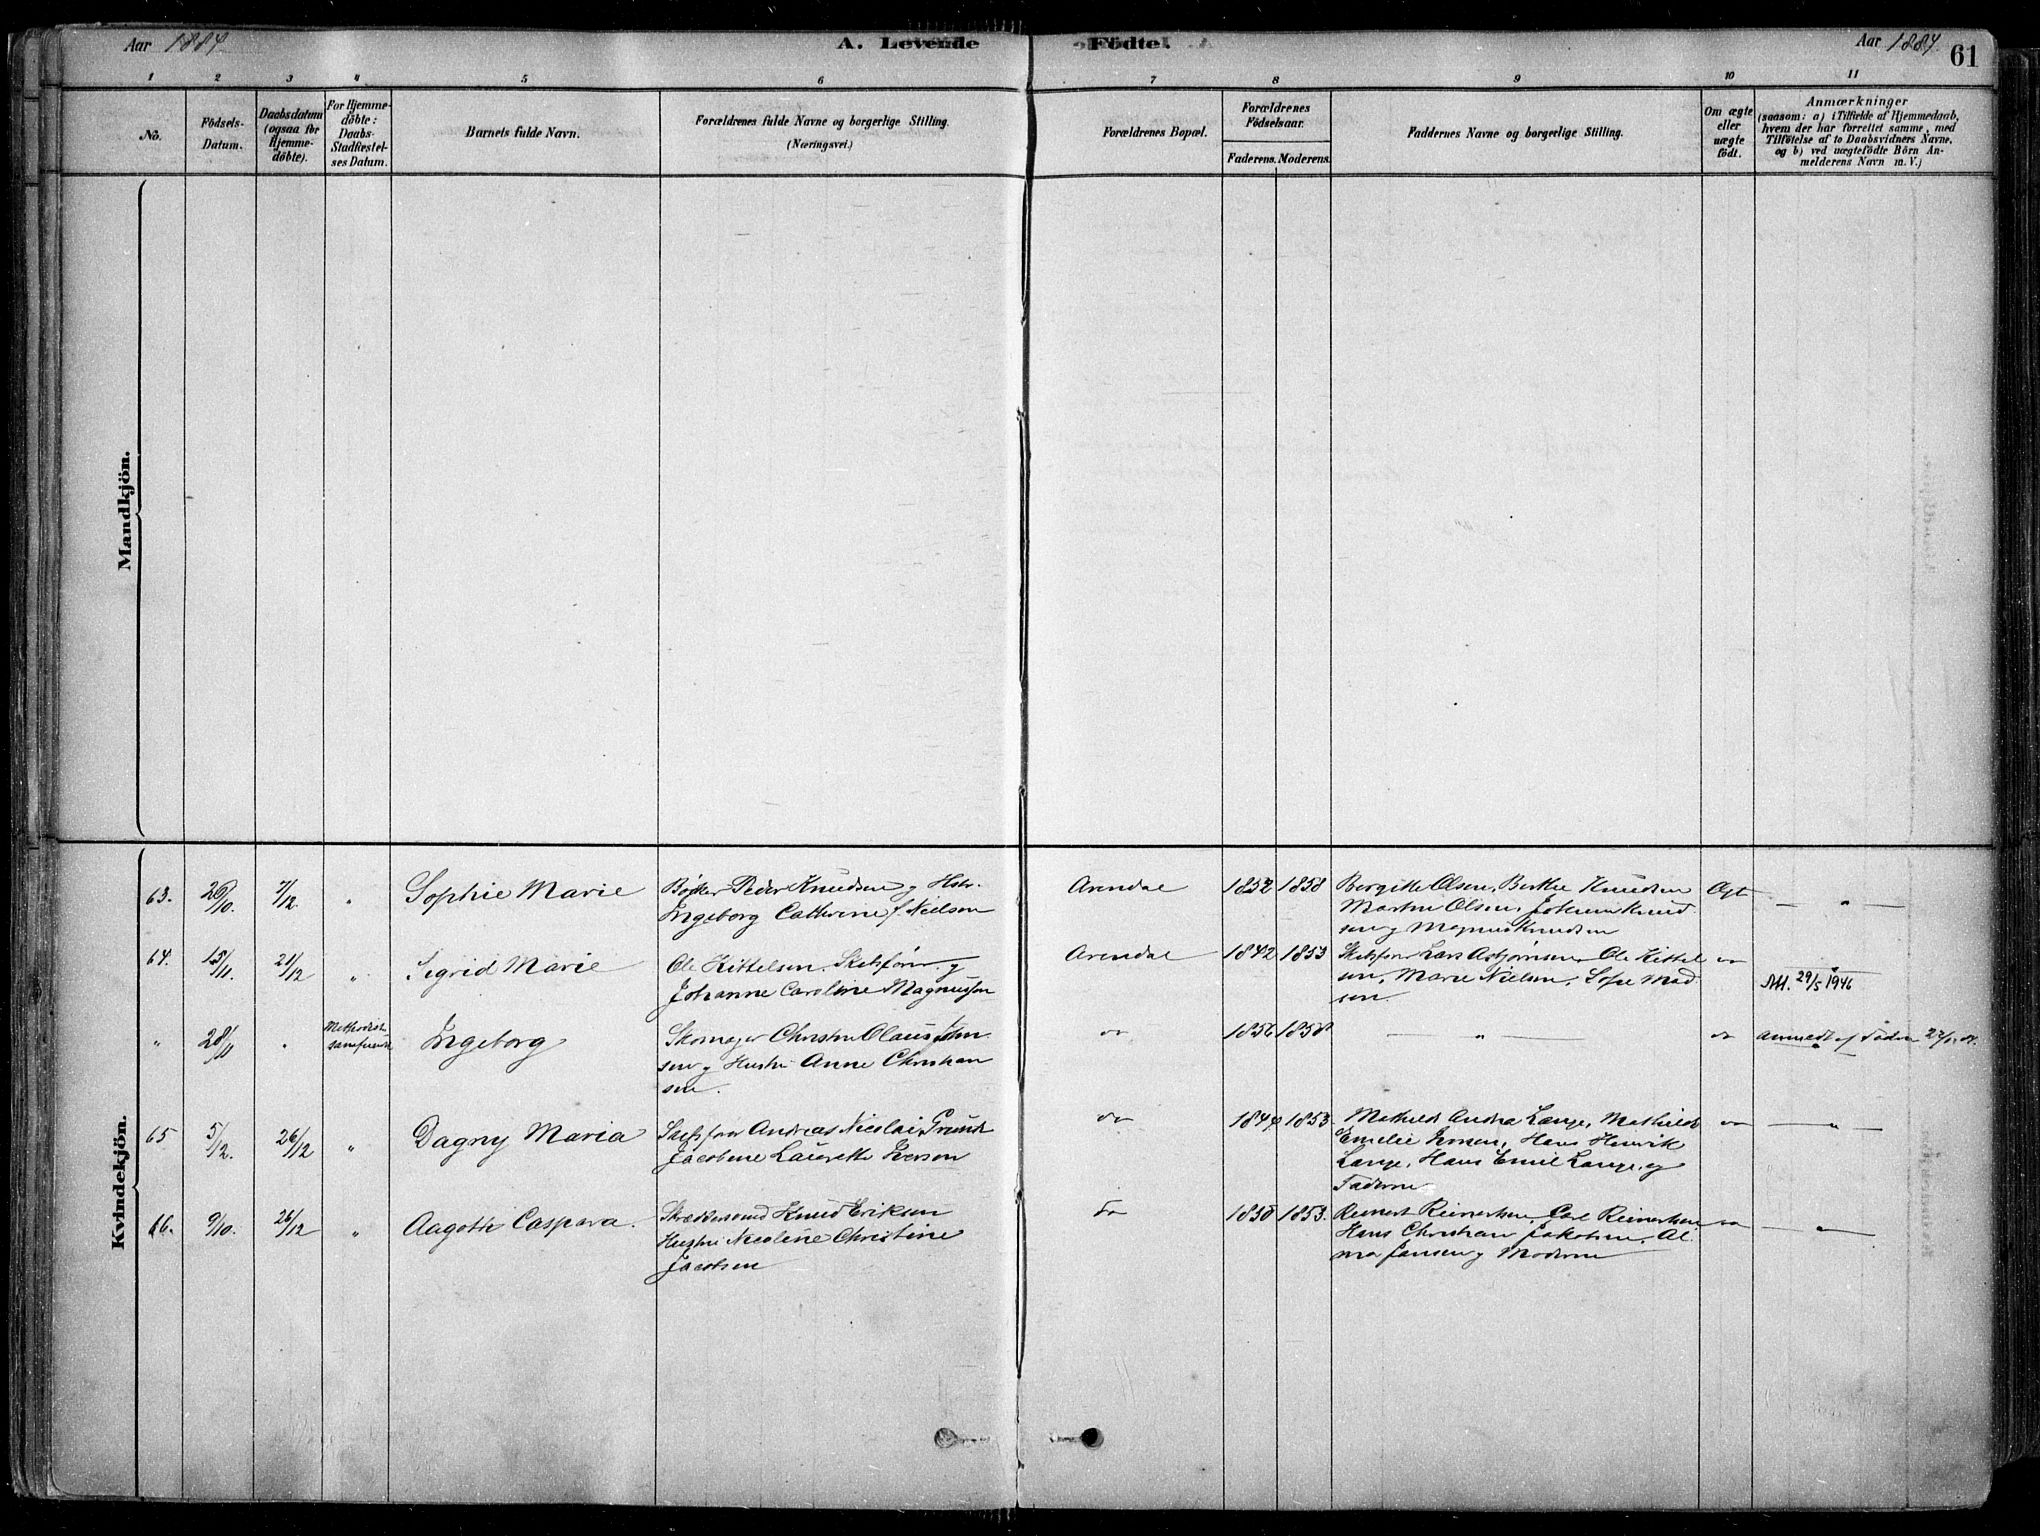 Aar 1884
A. Levende
Födte.
Aar 1884.
61
1 2 3 4 5 6 7 8 9 10 11
No.
Födsels-
Datum.
Daabsdatum
(ogsaa for
Hjemme-
döbte).
For Hjemme-
döbte:
Daabs-
Stadfæstel-
ses Datum.
Barnets fulde Navn.
Forældrenes fulde Navne og borgerlige Stilling.
(Næringsvei.)
Forældrenes Bopæl.
Forældrenes
Födselsaar.
Faderens. Moderens.
Faddernes Navne og borgerlige Stilling.
Om ægte
eller
uægte
födt.
Anmærkninger
(saasom: a) i Tilfælde af Hjemmedaab,
hvem der har forrettet samme, med
Tilföielse af to Daabsvidners Navne,
og b) ved uægtefödte Börn An-
melderens Navn m. V.)
Mandkjön.
Kvindekjön.
63. 26/10. 7/12 " Sophie Marie
Bødker Peder Knudsen og Hstr.
Ingeborg Cathrine f. Nielsen
Arendal 1852 1858
Borgitte Olsen, Berthe Knudsen
Martin Olsen, Jokum Knud
sen og Magnus Knudsen
Ægt
— " —
64. 15/11. 21/12 " Sigrid Marie
Ole Kittelsen. Skibsfører og
Johanne Caroline Magnussen
Arendal 1842 1853
Skibsfører Lars Asbjørnsen, Ole Kittel
sen, Marie Nielsen, Sofie Mad
sen
Att. 29/5 1946
" 28/11 " Methodist
samfundet
Ingeborg
Skomager Christen Olaus John
sen og Hustru Anne Christian
sen.
do 1856 1858
— " —
do
anmeldt af Faderen
65 5/12. 26/12 " Dagny Maria
Skibsfører Andreas Nicolai Prund
Jacobine Laurette Iversen
do 1844 1853.
Mathilde Andrea Lange, Mathilde
Emelie Iversen, Hans Henrik
Lange, Hans Emil Lange, og
Faderne
do
— " —
66. 9/10. 26/12 " Aagoth Caspara.
Skræddersvend Knud Eriksen
Hustru Nicoline Christine
Jacobsen
Do 1830 1853.
Reinert Reinertsen, Carl Reinertsen
Hans Christian Jakobsen, Al
ma Jansen og Moderen
do
— " —